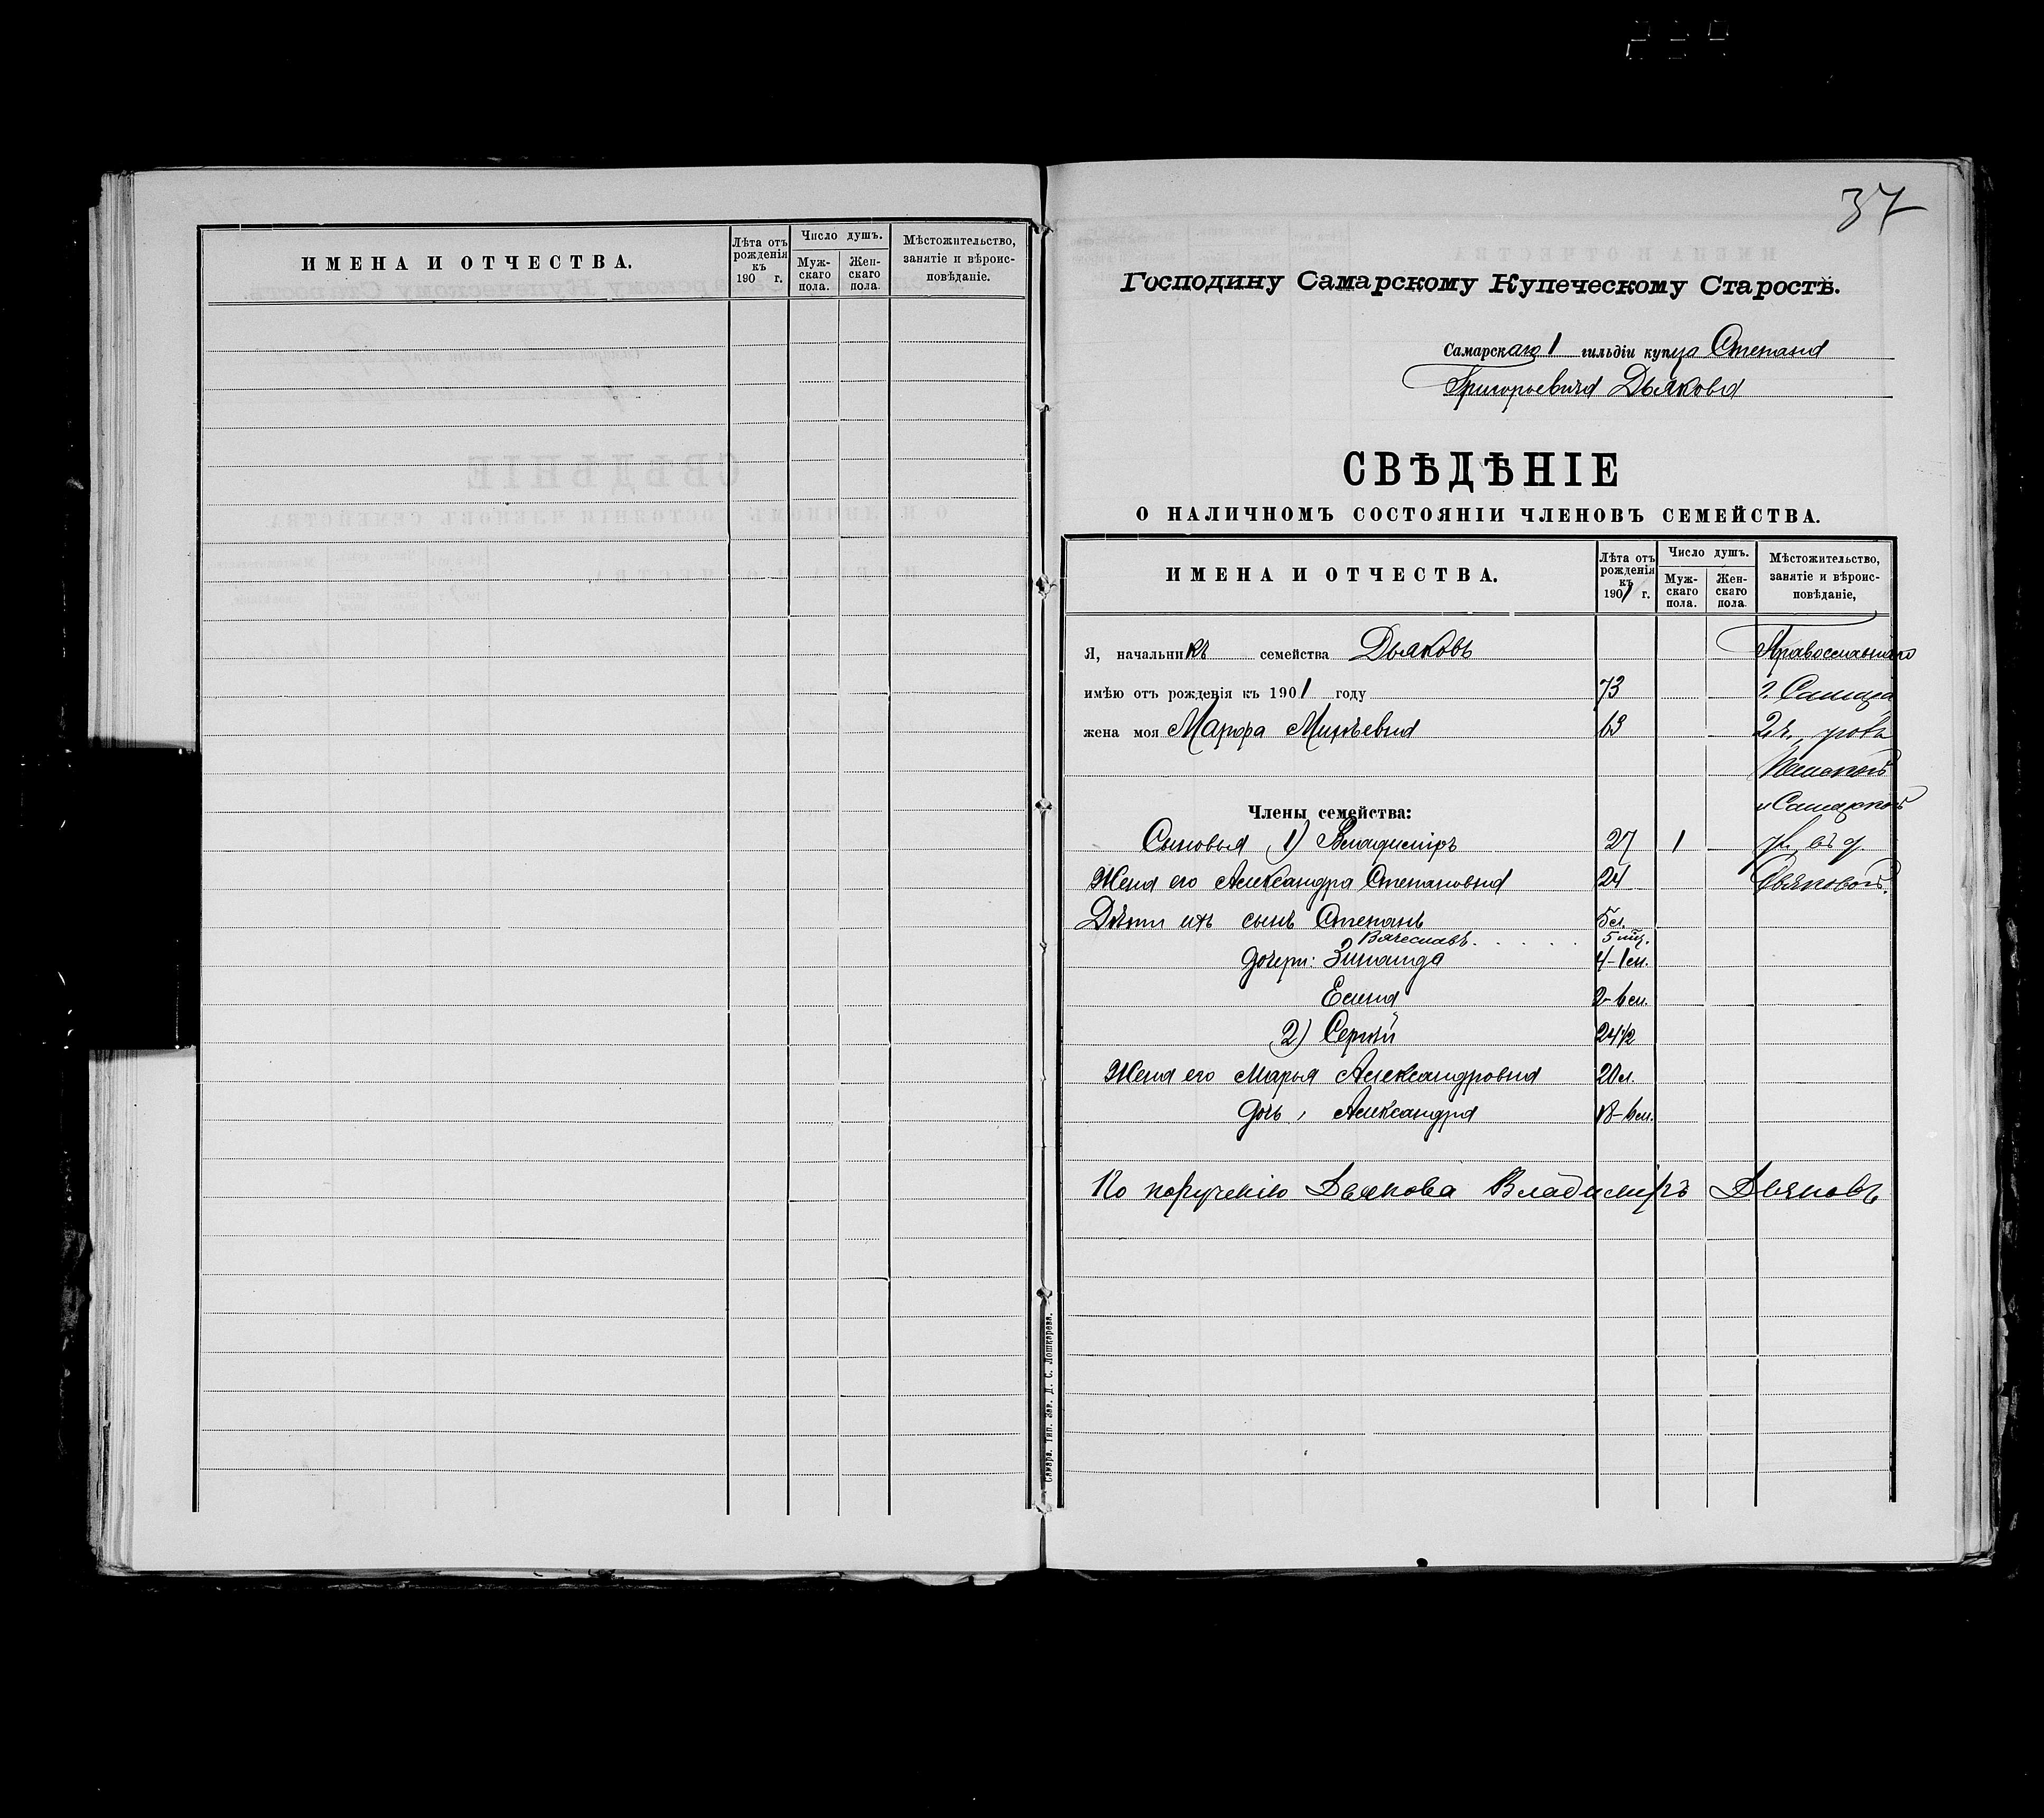 ИМЕНА И ОТЧЕСТВА.
Лѣта отъ рожденія къ 190 г.
Число душъ.
Мужскаго пола.
Женскаго пола.
Мѣстожительство, занятіе и вѣроисповѣданіе.
37
Господину Самарскому Купеческому Старостѣ.
Самарскаго 1 гильдіи купца Степана
Григорьевича Дьякова
СВѢДѢНІЕ
О НАЛИЧНОМЪ СОСТОЯНІИ ЧЛЕНОВЪ СЕМЕЙСТВА.
ИМЕНА И ОТЧЕСТВА.
Лѣта отъ рожденія къ 1901 г.
Число душъ.
Мужскаго пола.
Женскаго пола.
Мѣстожительство, занятіе и вѣроисповѣданіе,
Я, начальникъ семейства Дьяковъ Православнаго
имѣю отъ рожденія къ 1901 году 73 г. Самара
жена моя Марфа Михѣевна 63 2 ч.
и Самарской
Члены семейства:
Сыновья 1) Владиміръ 27 1
Жена его Александра Степановна 24 Дьяковой.
Дѣти ихъ сынъ Степанъ 5 л.
Вячеславъ 5 мѣс.
дочери: Зинаида 4-1 м.
Елена 2-6 м.
2) Сергѣй 24 1/2
Жена его Марья Александровна 20 л.
дочь, Александра
По порученію Дьякова Владимиръ Дьяковъ
Самара. Тип. Зав. Д. С. Лошкарева.